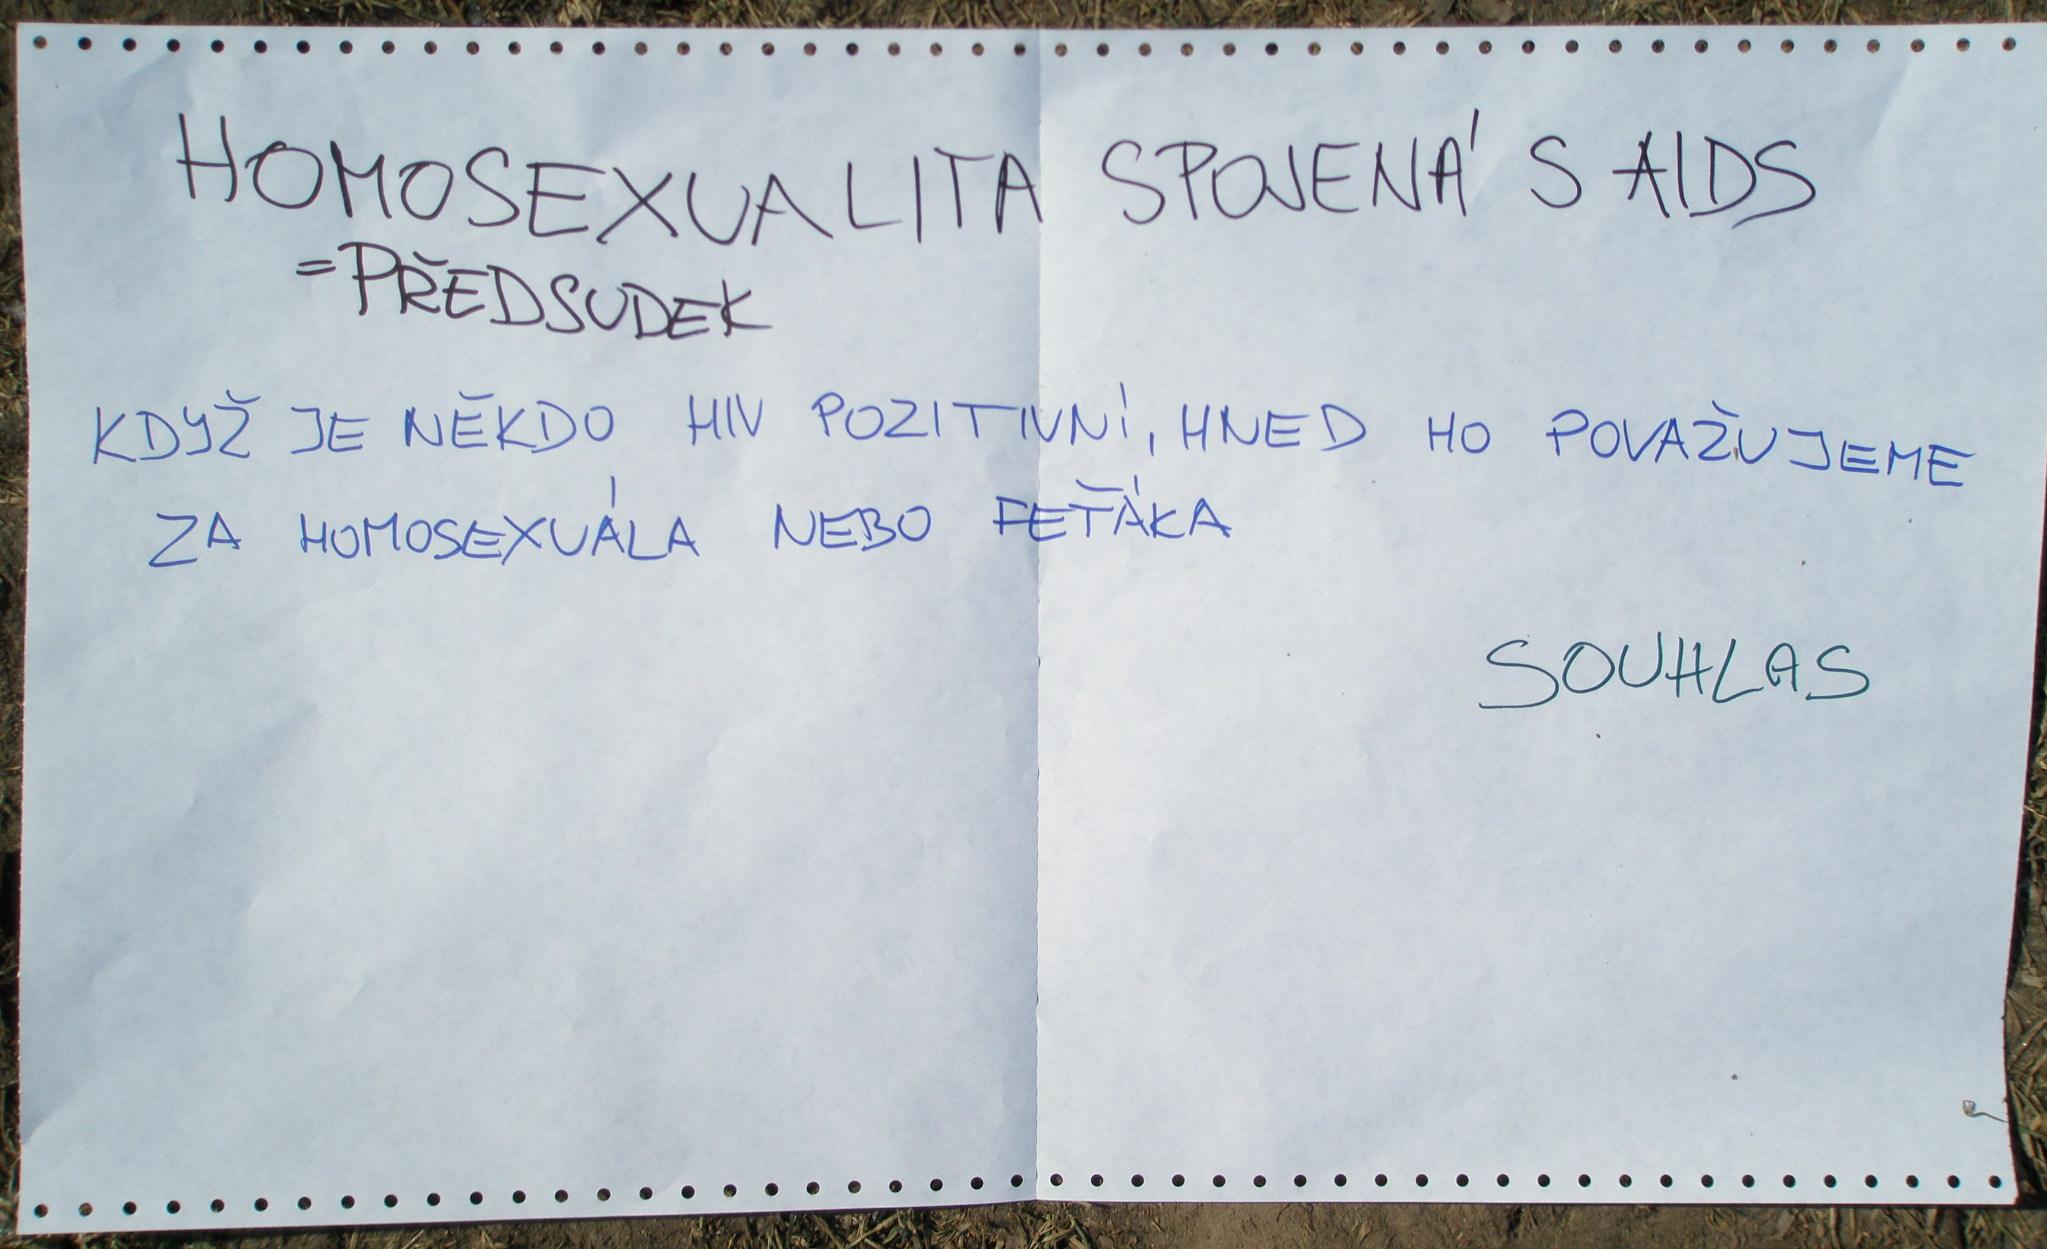 HOMOSEXUALITA SPOJENÁ S AIDS
=PŘEDSUDEK
KDYŽ JE NĚKDO HIV POZITIVNÍ, HNED HO POVAŽUJEME
ZA HOMOSEXUÁLA NEBO FEŤÁKA
SOUHLAS